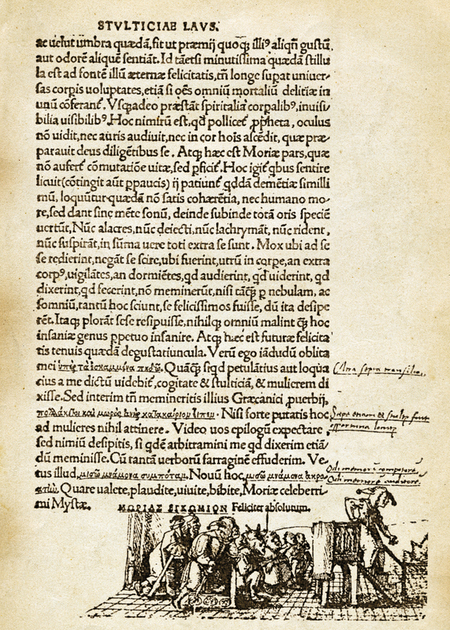 STVLTICIAE LAVS.
ac uelut umbra quædã, fit ut præmij quoqꝫ illiꝰ aliqñ gustũ,
aut odorẽ aliquẽ sentiãt. Id tãetsi minutissima quædã stillu
la est ad fontẽ illũ æternæ felicitatis, tñ longe supat uniuer-
sas corpis uoluptates, etiã si oẽs omniũ mortaliũ delitiæ in
unũ cõferant̃. Vsqꝫadeo præstãt spiritalia corpalibꝰ, inuisi-
bilia uisibilibꝰ. Hoc nimirũ est, qđ pollicet̃ ꝓpheta, oculus
nõ uidit, nec auris audiuit, nec in cor hoĩs ascẽdit, quæ præ-
parauit deus diligẽtibus se. Atqꝫ hæc est Moriæ pars, quæ
nõ aufert̃ cõmutatiõe uitæ, sed ꝑficit̃. Hoc igit̃ qbus sentire
licuit (cõtingit aũt ꝑpaucis) ij patiunt̃ qddã demẽtiæ similli
mũ, loquũtur quædã nõ satis cohærẽtia, nec humano mo-
re, sed dant sine mẽte sonũ, deinde subinde totã oris speciẽ
uertũt. Nũc alacres, nũc deiecti, nũc lachrymãt, nũc rident,
nũc suspirãt, in sũma uere toti extra se sunt. Mox ubi ad se
se redierint, negãt se scire, ubi fuerint, utrũ in corpe, an extra
corpꝰ, uigilãtes, an dormiẽtes, qd audierint, qd uiderint, qd
dixerint, qd fecerint, nõ meminerũt, nisi tãcꝫ ꝑ nebulam, ac
somniũ, tantũ hoc sciunt, se felicissimos fuisse, dũ ita desipe
rẽt. Itaqꝫ plorãt sese resipuisse, nihilqꝫ omniũ malint qꝫ hoc
insaniæ genus ꝑpetuo insanire. Atqꝫ hæc est futuræ felicita
tis tenuis quædã degustatiuncula. Verũ ego iãdudũ oblita
mei ὑπὲρ τὰ ἐσκαμμένα πηδῶ. Quãqꝫ siqd petulãtius aut loqua
cius a me dictũ uidebit̃, cogitate & stulticiã, & mulierem di
xisse. Sed interim tñ memineritis illius Græcanici ꝓuerbij,
πολλάκι τοι καὶ μωρὸς ἀνὴρ κατακαίριον εἶπεν. Nisi forte putatis hoc
ad mulieres nihil attinere. Video uos epilogũ expectare,
sed nimiũ desipitis, si qdẽ arbitramini me qd dixerim etiã-
dũ meminisse. Cũ tantã uerborũ farraginẽ effuderim. Ve-
tus illud, μισῶ μνάμονα συμπόταν. Nouũ hoc, μισῶ μνάμονα ἀκρο-
ατήν. Quare ualete, plaudite, uiuite, bibite, Moriæ celeberri
mi Mystæ.
ΜΩΡΙΑΣ ΕΓΚΩΜΙΟΝ Feliciter absolutum.